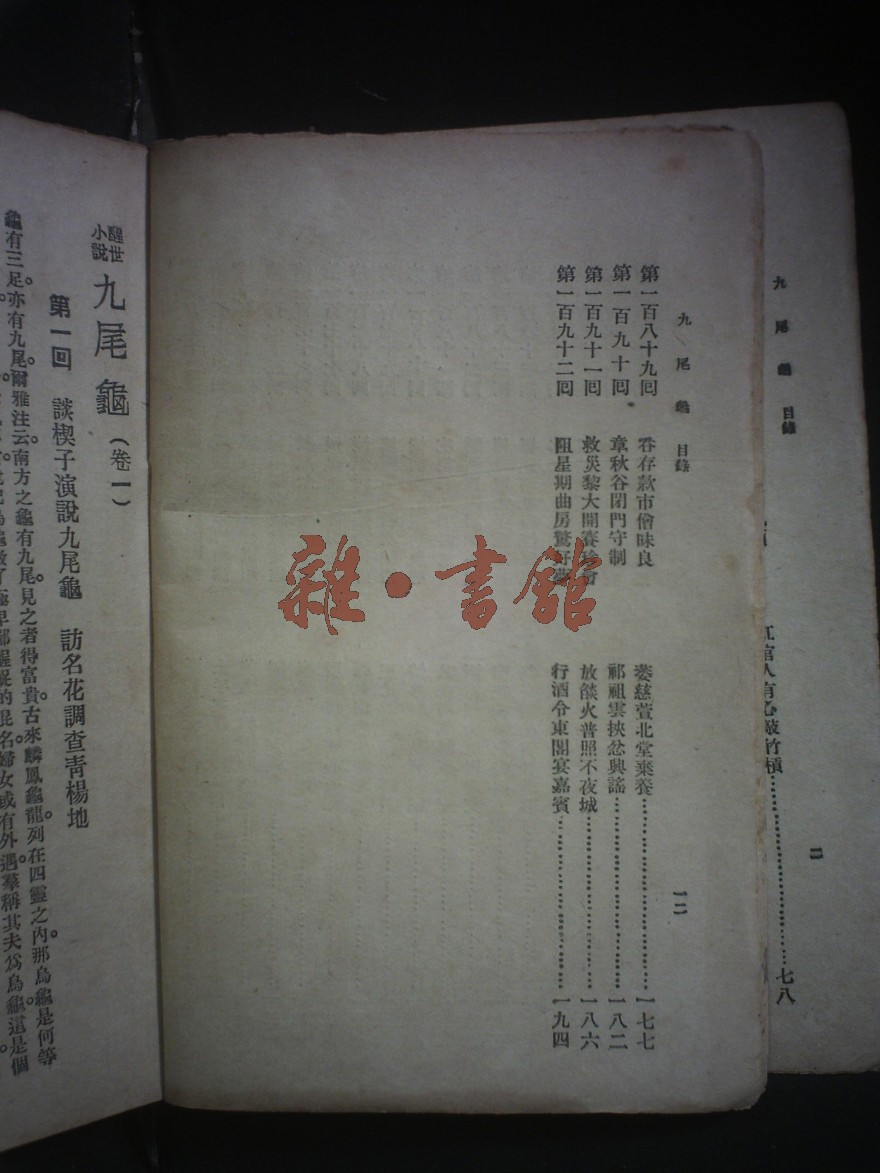 九尾龜 目錄
二
江
官人有心敲竹槓……七八
九尾龜 目錄
一二
第一百八十九回 吞存款市儈昧良 棄慈萱北堂棄養……一七七
第一百九十回 章秋谷閉門守制 祁祖雲挾忿興謠……一八二
第一百九十一回 救災黎大開賽珍會 放燄火普照不夜城……一八六
第一百九十二回 阻星期曲房驚好夢 行酒令東閣宴嘉賓……一九四
雜·書館
醒世小說 九尾龜(卷一)
第一回 談楔子演說九尾龜 訪名花調查青楊地
龜有三足。亦有九尾。爾雅注云。南方之龜有九尾。見之者得富貴。古來麟鳳龜龍。列在四靈之內。那烏龜是何等
的混名。婦女或有外遇。羣稱其夫爲烏龜。這是個